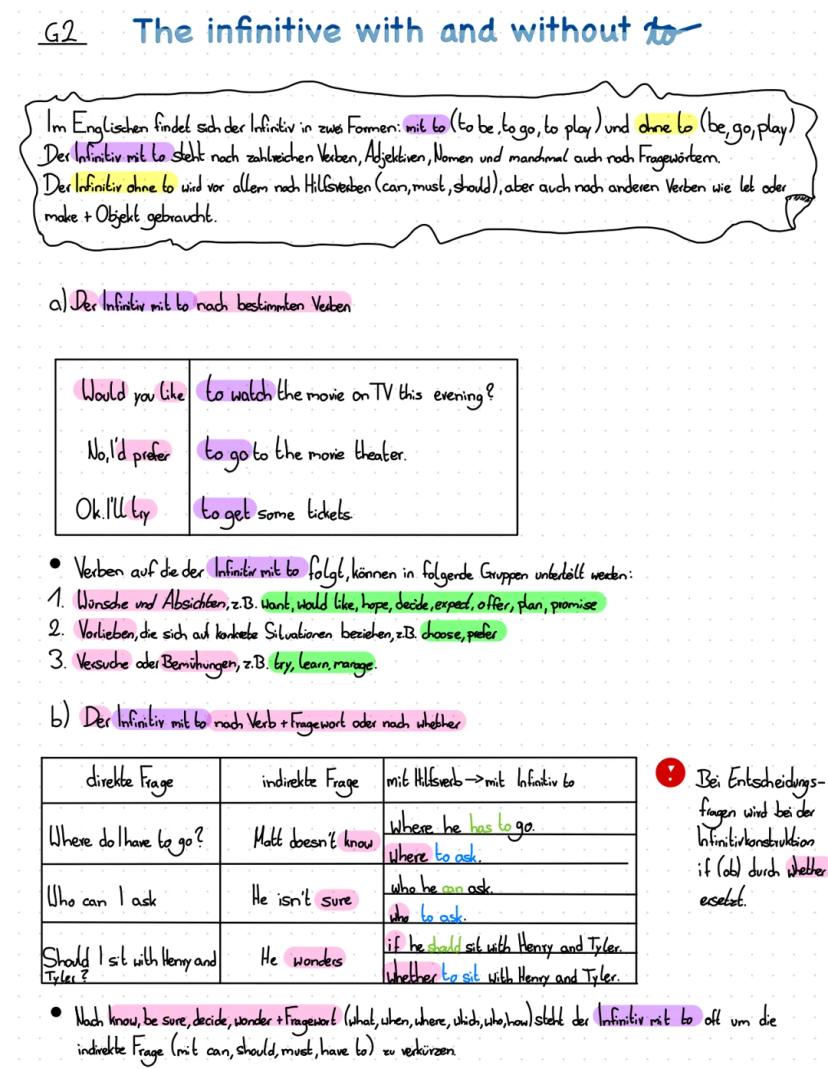 G2 The infinitive with and without to
Im Englischen findet sich der Infinitiv in zwei Formen: mit to (to be, to go, to play) und ohne to (be, go, play)
Der Infinitiv mit to steht nach zahlreichen Verben, Adjektiven, Nomen und manchmal auch nach Fragewörtern.
Der Infinitiv ohne to wird vor allem nach Hilfsverben (can, must, should), aber auch nach anderen Verben wie let oder
make + Objekt gebraucht.
a) Der Infinitiv mit to nach bestimmten Verben
Would you like to watch the movie on TV this evening?
No, I'd prefer to go to the movie theater.
Ok. I'll try to get some tickets.
• Verben auf die der Infinitiv mit to folgt, können in folgende Gruppen unterteilt werden:
1. Wünsche und Absichten, z.B. want, would like, hope, decide, expect, offer, plan, promise
2. Vorlieben, die sich auf konkrete Situationen beziehen, z.B. choose, prefer
3. Versuche oder Bemühungen, z.B. try, learn, manage.
b) Der Infinitiv mit to nach Verb + Fragewort oder nach whether
direkte Frage indirekte Frage mit Hilfsverb → mit Infinitiv to
Where do I have to go? Matt doesn't know where he has to go.
where to ask.
Who can I ask He isn't sure who he can ask.
who to ask.
Should I sit with Henry and Tyler? He wonders if he should sit with Henry and Tyler.
whether to sit with Henry and Tyler.
! Bei Entscheidungs-
fragen wird bei der
Infinitivkonstruktion
if (ob) durch whether
ersetzt.
• Nach know, be sure, decide, wonder + Fragewort (what, when, where, which, who, how) steht der Infinitiv mit to oft um die
indirekte Frage (mit can, should, must, have to) zu verkürzen.